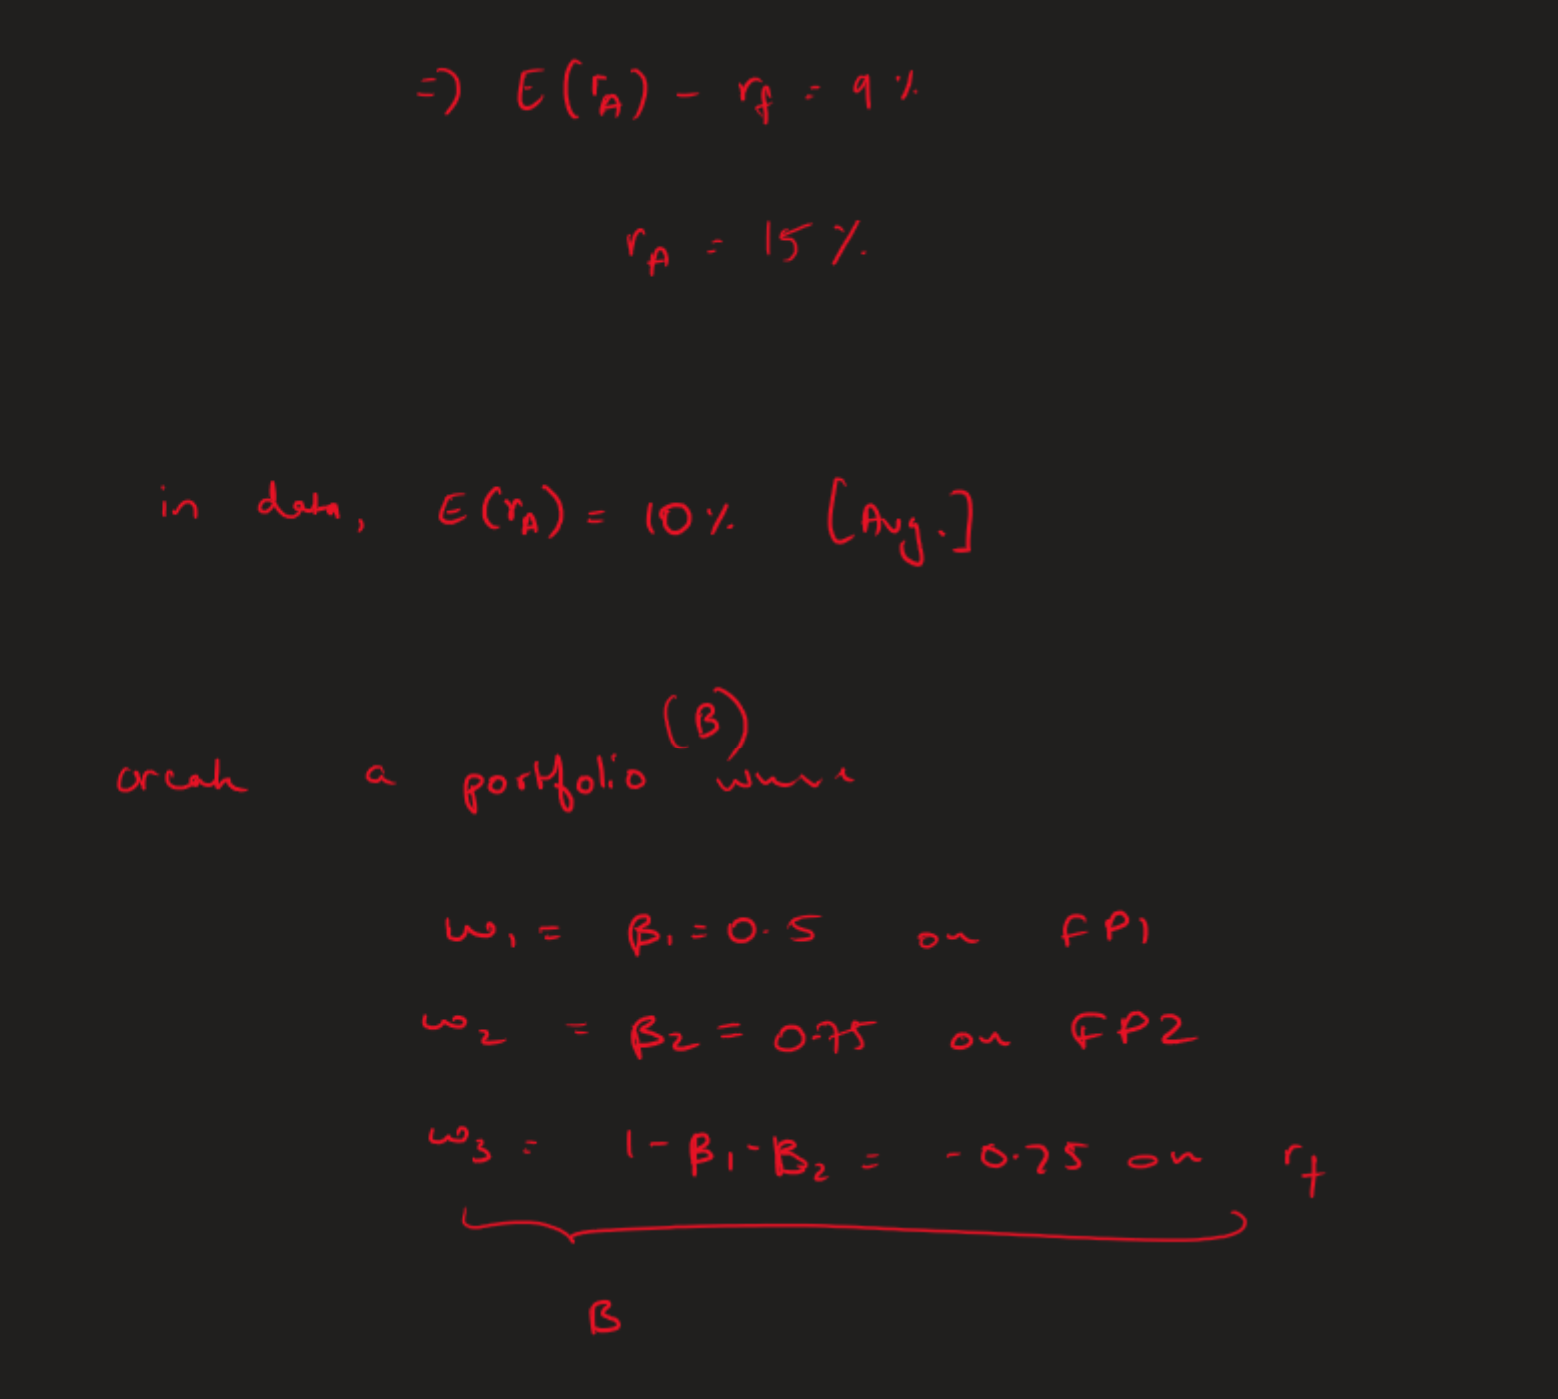 => E(r_A) - r_f = 9%
r_A = 15%
in data, E(r_A) = 10% [Avg.]
(B)
a portfolio where
w_1 = β_1 = 0.5 on FP1
w_2 = β_2 = 0.75 on FP2
w_3 = 1 - β_1 - β_2 = -0.25 on r_f
B